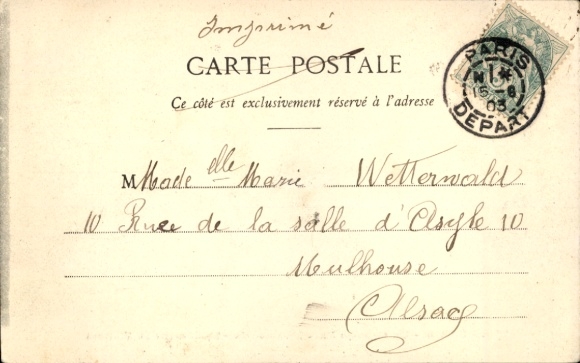 Imprimé
CARTE POSTALE
Ce côté est exclusivement réservé à l'adresse
PARIS
15-8
03
DEPART
MMade elle Marie Wetterwald
10 Rue de la salle d'Asyle 10
Mulhouse
Alsace